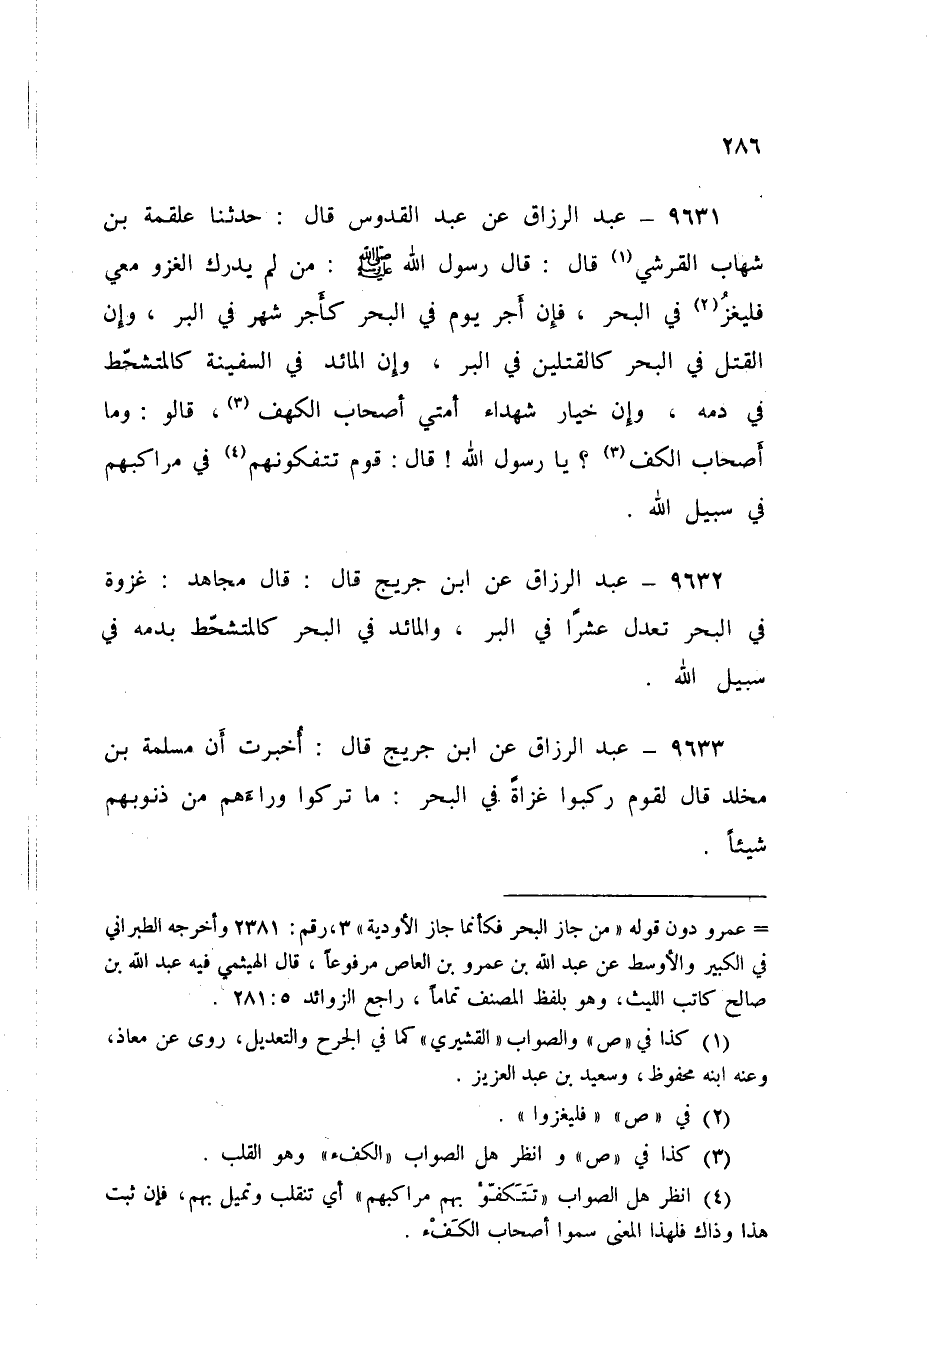 ٢٨٦
٩٦٣١ – عبد الرزاق عن عبد القدوس قال : حدثنا علقمة بن
شهاب القرشي(١) قال : قال رسول الله ﷺ : من لم يدرك الغزو معي
فليغزُ(٢) في البحر ، فإن أجر يوم في البحر كأجر شهر في البر ، وإن
القتل في البحر كالقتلين في البر ، وإن المائد في السفينة كالمتشحّط
في دمه ، وإن خيار شهداء أمتي أصحاب الكهف(٣) ، قالو : وما
أصحاب الكف(٣) ؟ يا رسول الله ! قال : قوم تتفكونهم(٤) في مراكبهم
في سبيل الله .
٩٦٣٢ – عبد الرزاق عن ابن جريج قال : قال مجاهد : غزوة
في البحر تعدل عشرًا في البر ، والمائد في البحر كالمتشحّط بدمه في
سبيل الله .
٩٦٣٣ – عبد الرزاق عن ابن جريج قال : أُخبرت أن مسلمة بن
مخلد قال لقوم ركبوا غزاةً في البحر : ما تركوا وراءهم من ذنوبهم
شيئاً .
= عمرو دون قوله « من جاز البحر فكأنما جاز الأودية » ٣، رقم : ٢٣٨١ وأخرجه الطبراني
في الكبير والأوسط عن عبد الله بن عمرو بن العاص مرفوعاً ، قال الهيثمي فيه عبد الله بن
صالح كاتب الليث، وهو بلفظ المصنف تماماً ، راجع الزوائد ٥ : ٢٨١ .
(١) كذا في «ص» والصواب «القشيري» كما في الجرح والتعديل، روى عن معاذ،
وعنه ابنه محفوظ، وسعيد بن عبد العزيز .
(٢) في « ص » « فليغزوا » .
(٣) كذا في «ص» و انظر هل الصواب «الكفء» وهو القلب .
(٤) انظر هل الصواب «تَتَكفّوْ بهم مراكبهم» أي تنقلب وتميل بهم، فإن ثبت
هذا وذاك فلهذا المعنى سموا أصحاب الكَفْء .